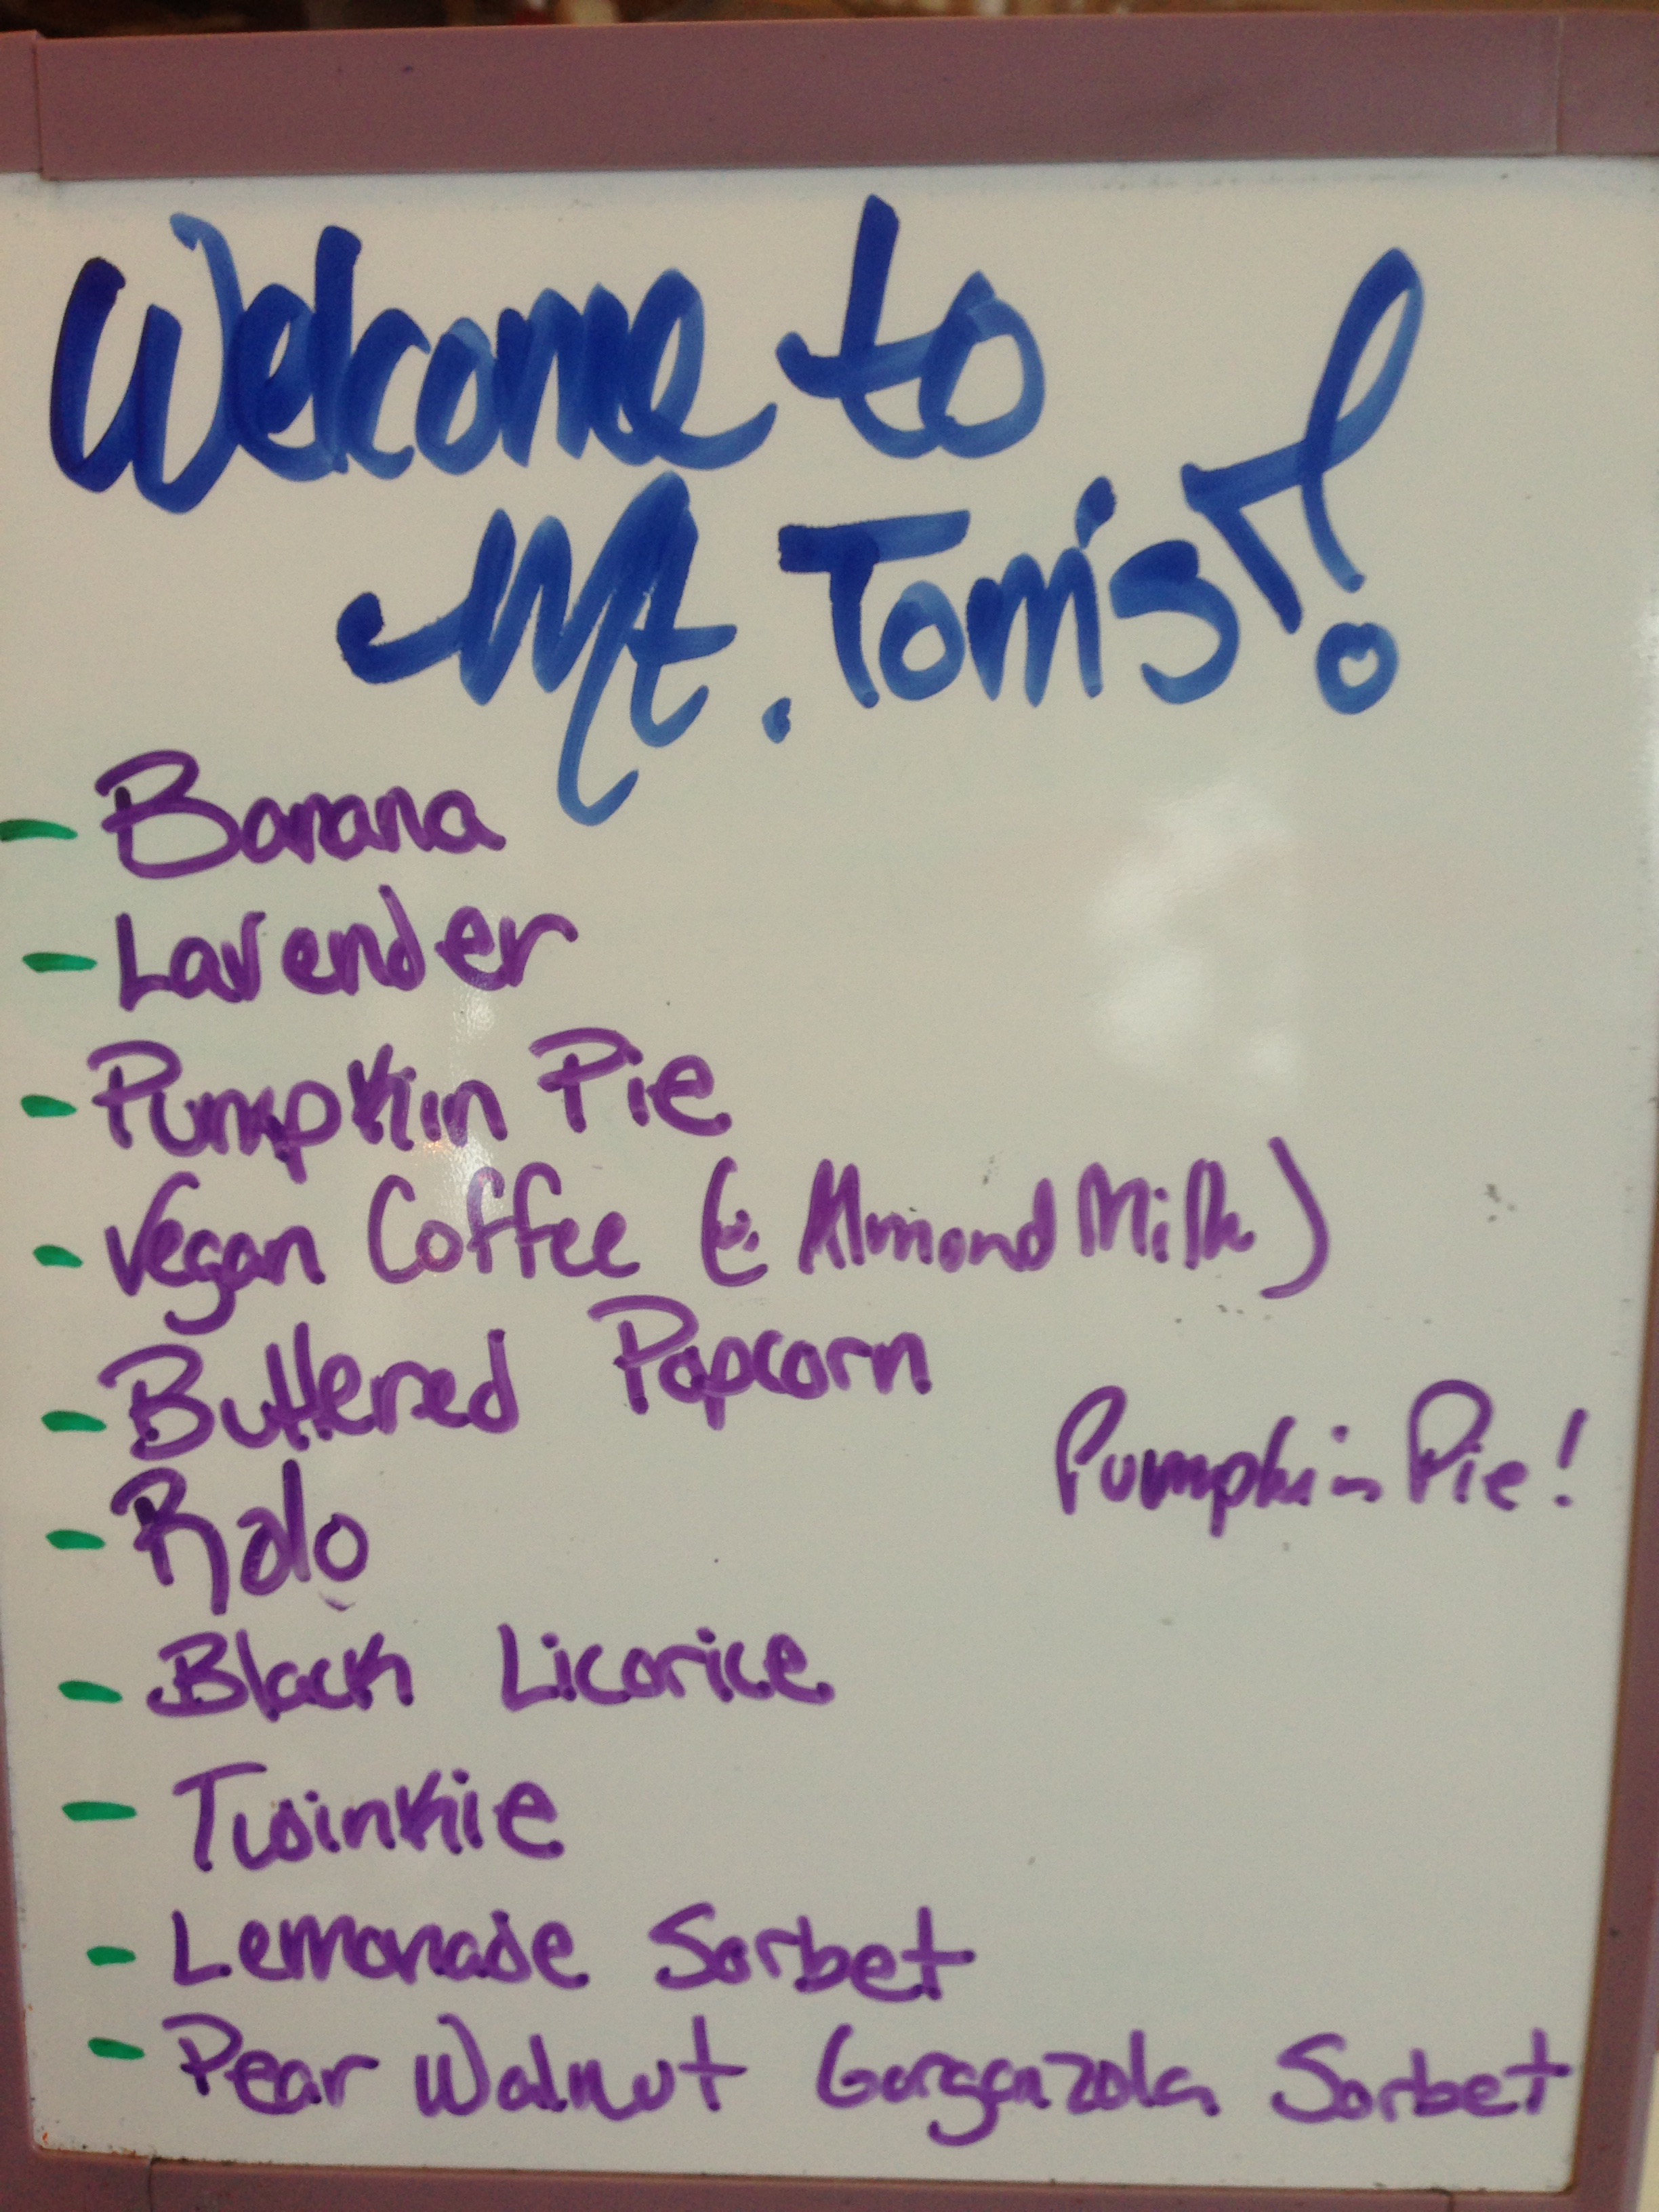 Welcome to
Mt. Tom's!
- Banana
- Lavender
- Pumpkin Pie
- Vegan Coffee (: Almond Milk)
- Buttered Popcorn
Pumpkin Pie!
- Rolo
- Black Licorice
- Twinkie
- Lemonade Sorbet
- Pear Walnut Gorganzola Sorbet